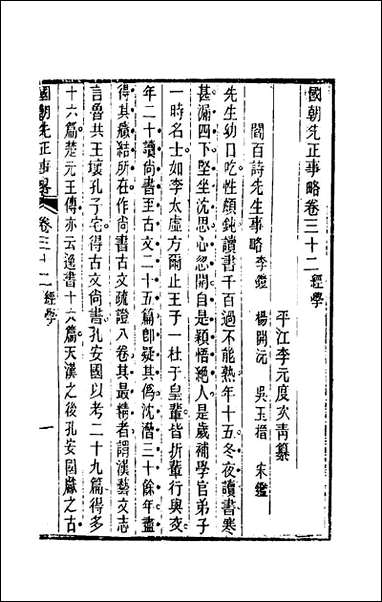 國朝先正事略卷三十二 經學
平江李元度次青纂
閻百詩先生事略 李鎧 楊開沅 吳玉搢 朱鑑
先生幼口吃性頗鈍讀書千百過不能熟年十五冬夜讀書寒
甚漏四下堅坐沈思心忽開自是穎悟絕人是歲補學官弟子
一時名士如李太虛方爾止王于一杜于皇輩皆折輩行與交
年二十讀尚書至古文二十五篇卽疑其僞沈潛三十餘年盡
得其癥結所在作尚書古文疏證八卷其最精者謂漢藝文志
言魯共王壞孔子宅得古文尚書孔安國以考二十九篇得多
十六篇楚元王傳亦云逸書十六篇天漢之後孔安國獻之古
國朝先正事略 卷三十二 經學 一